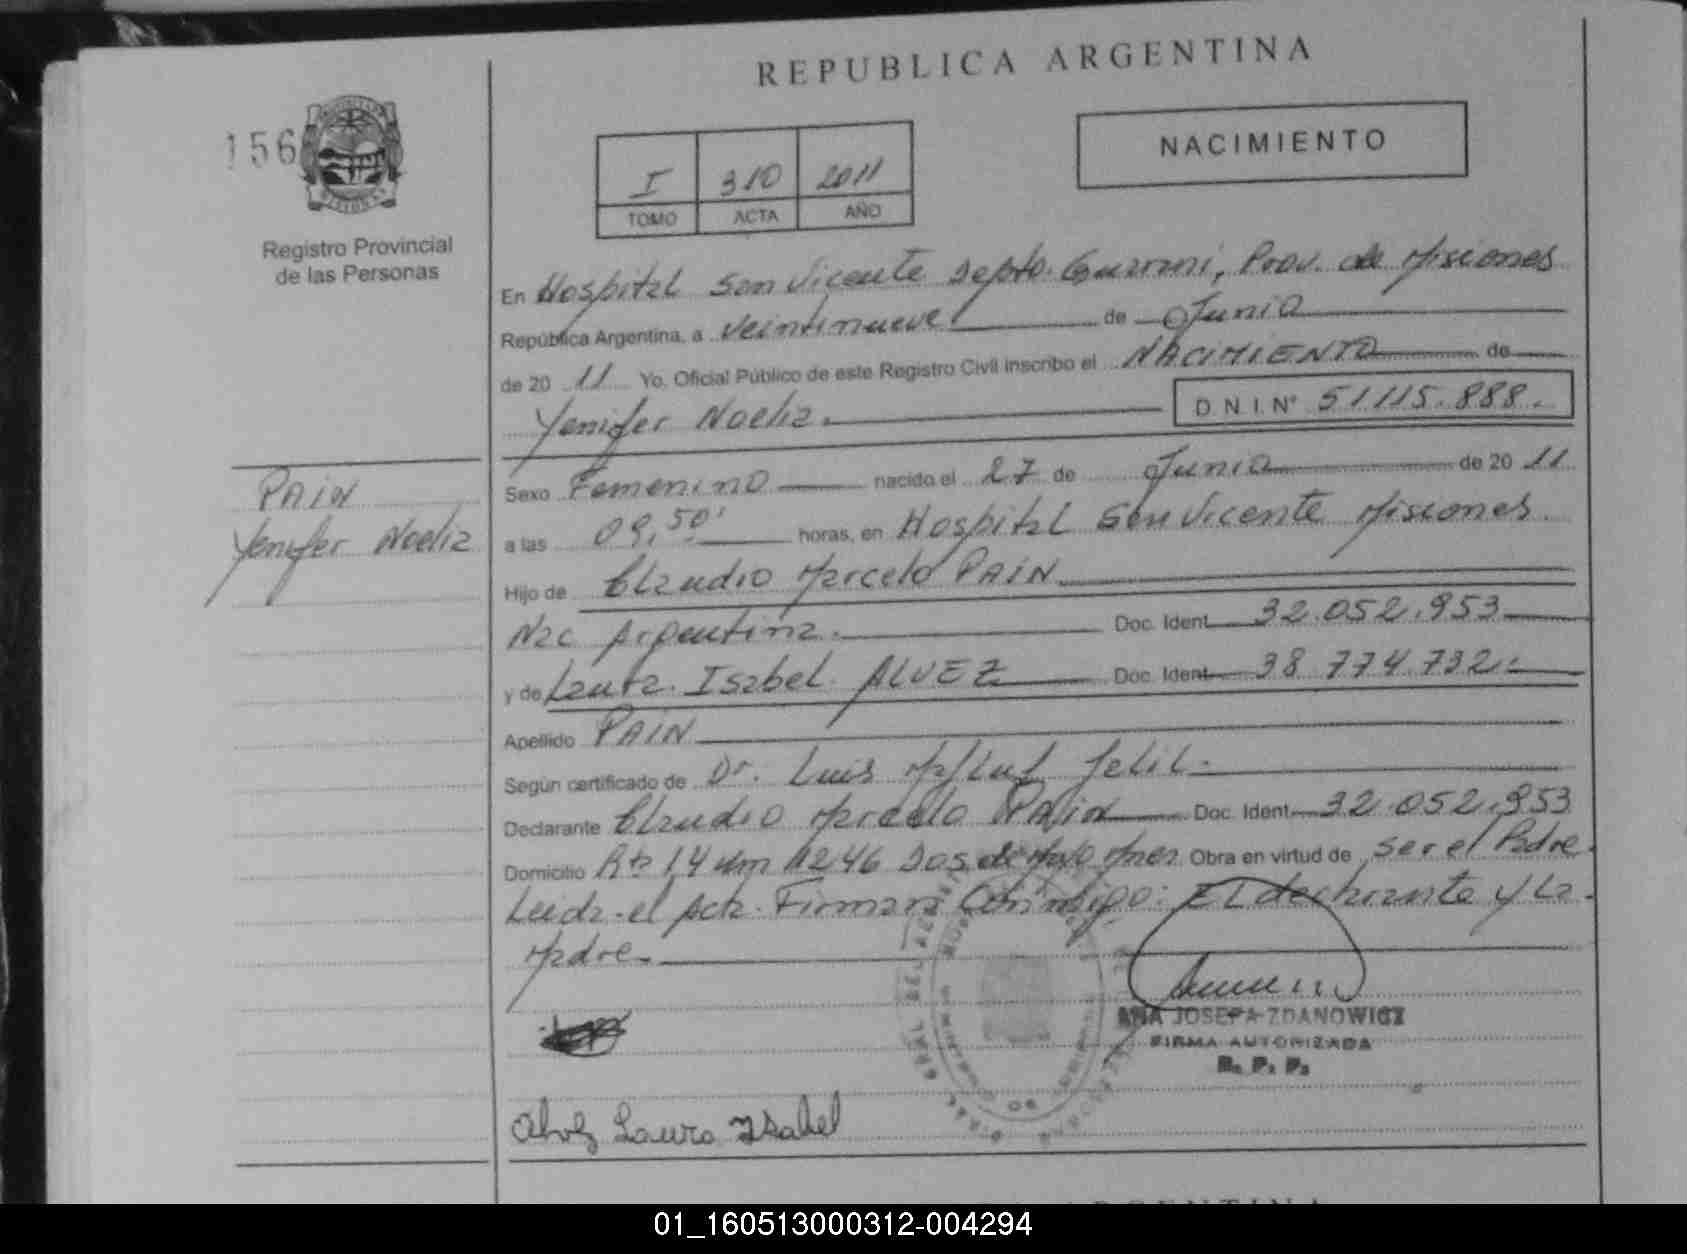 REPUBLICA ARGENTINA
156
NACIMIENTO
I 310 2011
TOMO ACTA AÑO
Registro Provincial
de las Personas
En Hospital San Vicente Depto. Guarani, Prov. de Misiones
República Argentina, a veintinueve de Junio
de 20 11 Yo, Oficial Público de este Registro Civil inscribo el NACIMIENTO de
Yenifer Noelia. D.N.I. N° 51115.888.
PAIN
Yenifer Noelia
Sexo Femenino nacido el 27 de Junio de 20 11
a las 09,50' horas, en Hospital San Vicente Misiones.
Hijo de Claudio Marcelo PAIN
Nac Argentina. Doc. Ident. 32.052.953
y de Laura Isabel ALVEZ Doc. Ident. 38.774.732.
Apellido PAIN
Según certificado de Dr. Luis
Declarante Claudio Marcelo PAIN Doc. Ident. 32.052.953
Domicilio Rta 14 Km 1246 Dos de Mayo Mnes Obra en virtud de ser el Padre.
Leida el Acta. Firman Conmigo: El declarante y La
Madre.
ANA JOSEFA ZDANOWICZ
FIRMA AUTORIZADA
R. P. P.
Alvez Laura Isabel
ARGENTINA
01_160513000312-004294